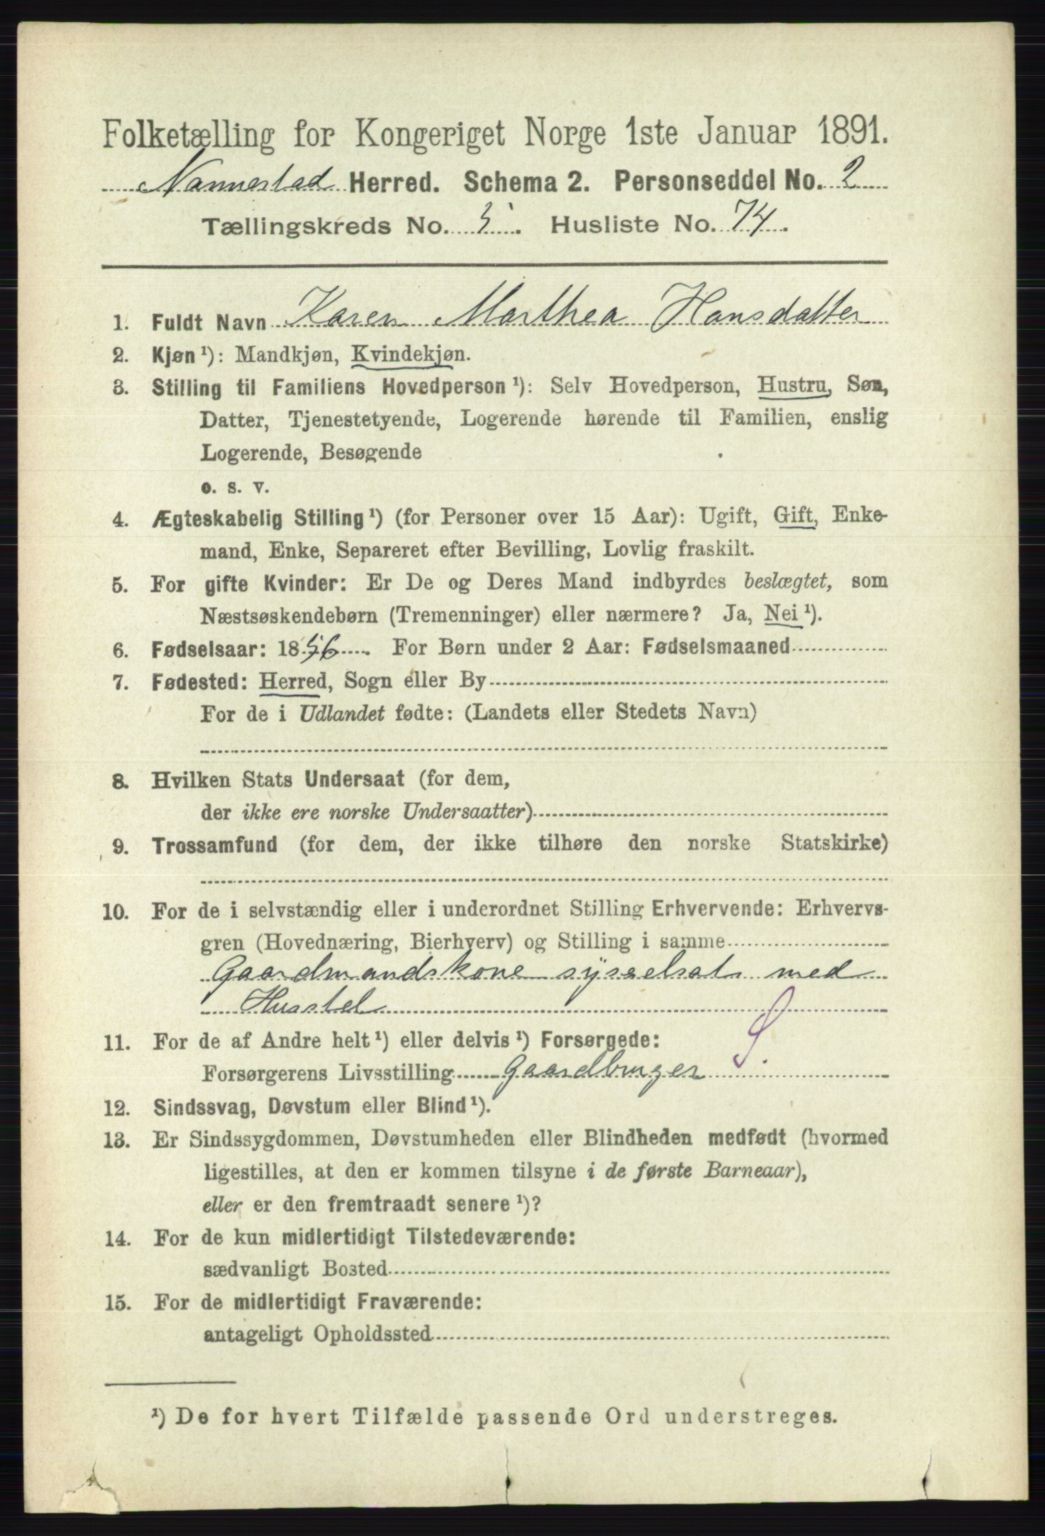 Folketælling for Kongeriget Norge 1ste Januar 1891.
Nannestad Herred. Schema 2. Personseddel No. 2
Tællingskreds No. 5. Husliste No. 74.
1. Fuldt Navn Karen Marthea Hansdatter
2. Kjøn ¹): Mandkjøn, Kvindekjøn.
3. Stilling til Familiens Hovedperson ¹): Selv Hovedperson, Hustru, Søn,
Datter, Tjenestetyende, Logerende hørende til Familien, enslig
Logerende, Besøgende
o. s. v.
4. Ægteskabelig Stilling ¹) (for Personer over 15 Aar): Ugift, Gift, Enke-
mand, Enke, Separeret efter Bevilling, Lovlig fraskilt.
5. For gifte Kvinder: Er De og Deres Mand indbyrdes beslægtet, som
Næstsøskendebørn (Tremenninger) eller nærmere? Ja, Nei ¹).
6. Fødselsaar: 1856. For Børn under 2 Aar: Fødselsmaaned
7. Fødested: Herred, Sogn eller By
For de i Udlandet fødte: (Landets eller Stedets Navn)
8. Hvilken Stats Undersaat (for dem,
der ikke ere norske Undersaatter)
9. Trossamfund (for dem, der ikke tilhøre den norske Statskirke)
10. For de i selvstændig eller i underordnet Stilling Erhvervende: Erhvervs-
gren (Hovednæring, Bierhverv) og Stilling i samme
Gaardmandskone sysselsat med
Husstel
11. For de af Andre helt ¹) eller delvis ¹) Forsørgede: S.
Forsørgerens Livsstilling Gaardbruger
12. Sindssvag, Døvstum eller Blind ¹).
13. Er Sindssygdommen, Døvstumheden eller Blindheden medfødt (hvormed
ligestilles, at den er kommen tilsyne i de første Barneaar),
eller er den fremtraadt senere ¹)?
14. For de kun midlertidigt Tilstedeværende:
sædvanligt Bosted
15. For de midlertidigt Fraværende:
antageligt Opholdssted
¹) De for hvert Tilfælde passende Ord understreges.